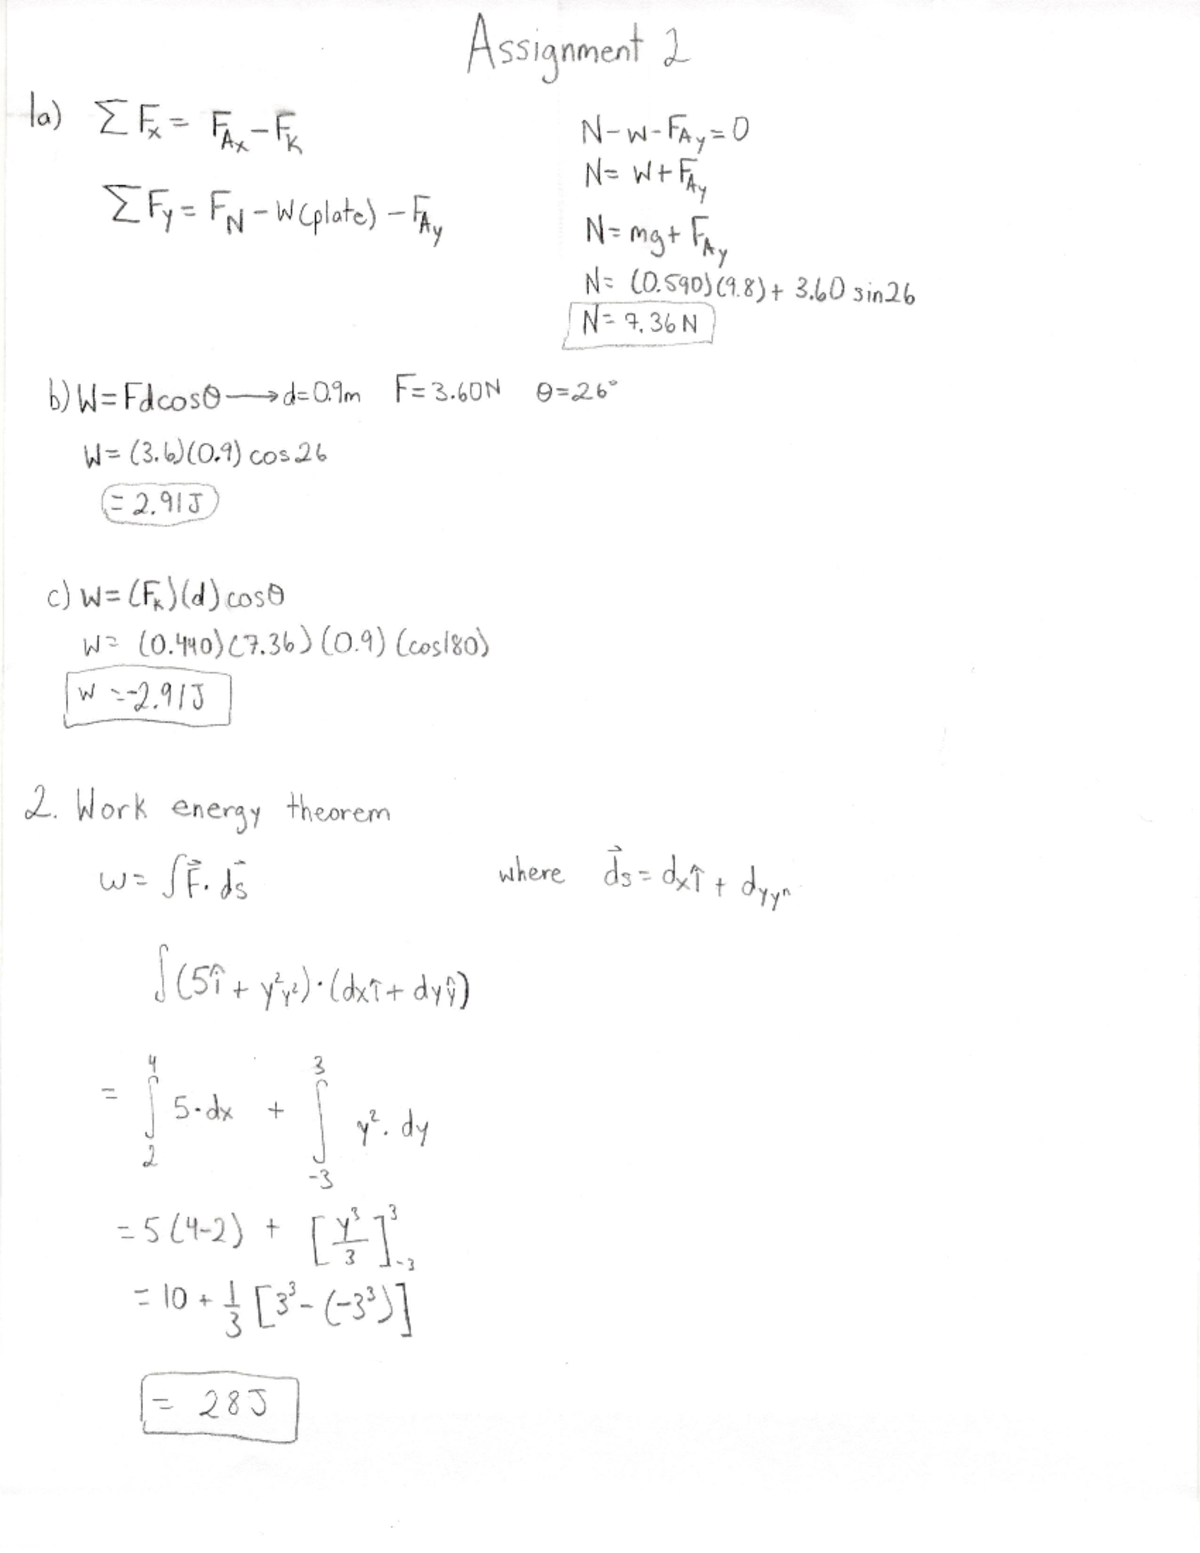 Assignment 2
1a) ΣFx = FAx - FK
ΣFy = FN - W(plate) - FAy
N - W - FAy = 0
N = W + FAy
N = mg + FAy
N = (0.590)(9.8) + 3.60 sin26
N = 7.36 N
b) W = Fdcosθ → d = 0.9m F = 3.60N θ = 26°
W = (3.6)(0.9) cos 26
= 2.91J
c) W = (Fk)(d) cosθ
W = (0.440)(7.36)(0.9)(cos180)
W = -2.91J
2. Work energy theorem
W = ∫F⃗ · ds⃗ where ds⃗ = dxî + dyyⁿ
∫(5î + y²y²) · (dxî + dyŷ)
= ∫₂⁴ 5 · dx + ∫₋₃³ y² · dy
= 5(4-2) + [y³/3]³₋₃
= 10 + 1/3 [3³ - (-3³)]
= 28J